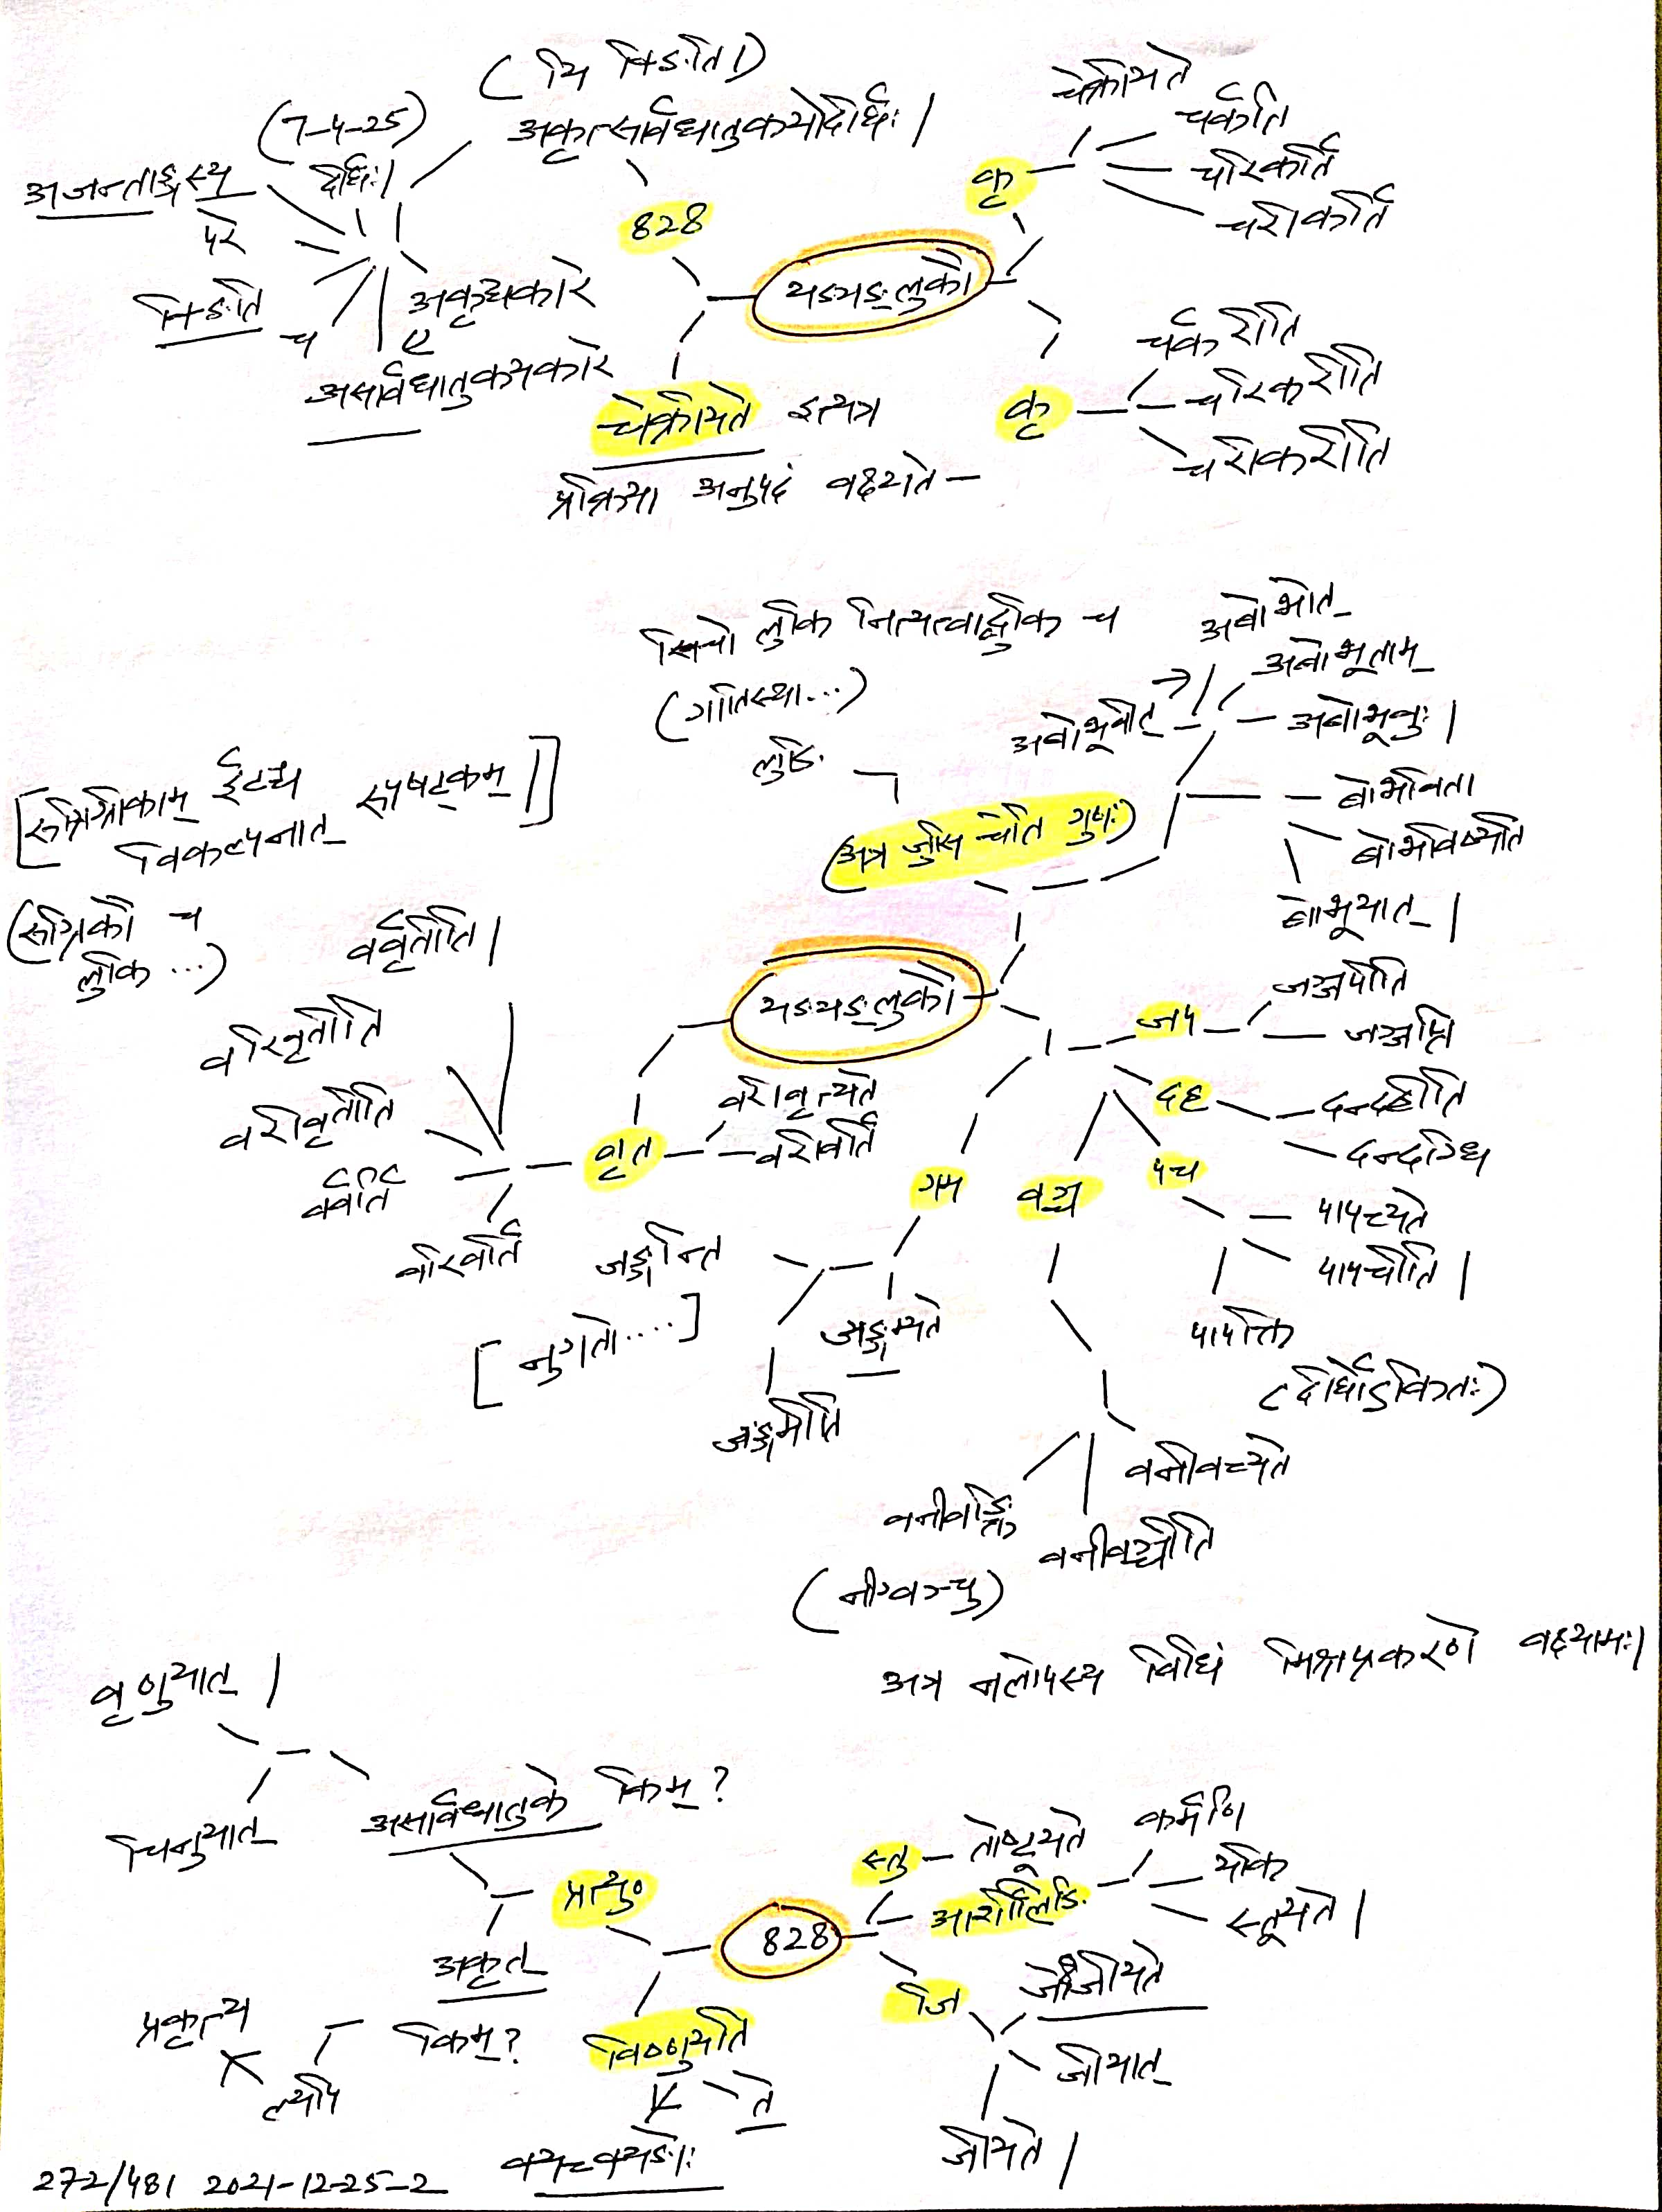 (यि क्ङिति।)
अकृत्सार्वधातुकयोर्दीर्घः।
(7-4-25)
दीर्घः।
अजन्ताङ्गस्य
परे
क्ङिति
च
अकृद्यकारे
असार्वधातुकयकारे
828
यङ्यङ्लुकौ
कृ
चेक्रीयते
चर्कर्ति
चरिकर्ति
चरीकर्ति
कृ
चर्करीति
चरिकरीति
चरीकरीति
चेक्रीयते इत्यत्र
प्रक्रिया अनुपदं वक्ष्यते —
सिचो लुकि नित्यत्वाद्वुकि च
(गातिस्था...)
लुङि
(अत्र जुसि चेति गुणः)
अबोभोत्
अबोभूताम्
अबोभूवीत्
अबोभूवुः।
बोभविता
बोभविष्यति
बोभूयात्।
[रुग्रिग्रीकाम् ईटश्च
विकल्पनात् रूपषट्कम्।]
(रुग्रिकौ च
लुकि ...)
वर्वृतीति।
वरिवृतीति
वरीवृतीति
वर्वर्ति
वरिवर्ति
वृत्
वरीवृत्यते
वरीवर्ति
यङ्यङ्लुकौ
जप
जञ्जपीति
जञ्जप्ति
दह
दन्दहीति
दन्दग्धि
पच
पापच्यते
पापचीति।
पापक्ति
(दीर्घोऽकितः)
गम
जङ्गन्ति
[नुगतो....]
जङ्गम्यते
जङ्गमीति
वञ्च
वनीवच्यते
वनीवञ्चीति
वनीवङ्क्ति
(नीग्वञ्चु)
अत्र नलोपस्य विधिं मिश्रप्रकरणे वक्ष्यामः।
वृणुयात्।
चिनुयात्
असार्वधातुके किम्?
प्रत्यु०
अकृत्
किम्?
प्रकृत्य
ल्यपि
828
स्तु — तोष्टूयते
आशीर्लिङि
कर्मणि
यकि
स्तूयते।
जि
जेजीयते
जीयात्
जीयते।
विष्णुयति
ते
क्यच्क्यङोः
272/481 2021-12-25-2